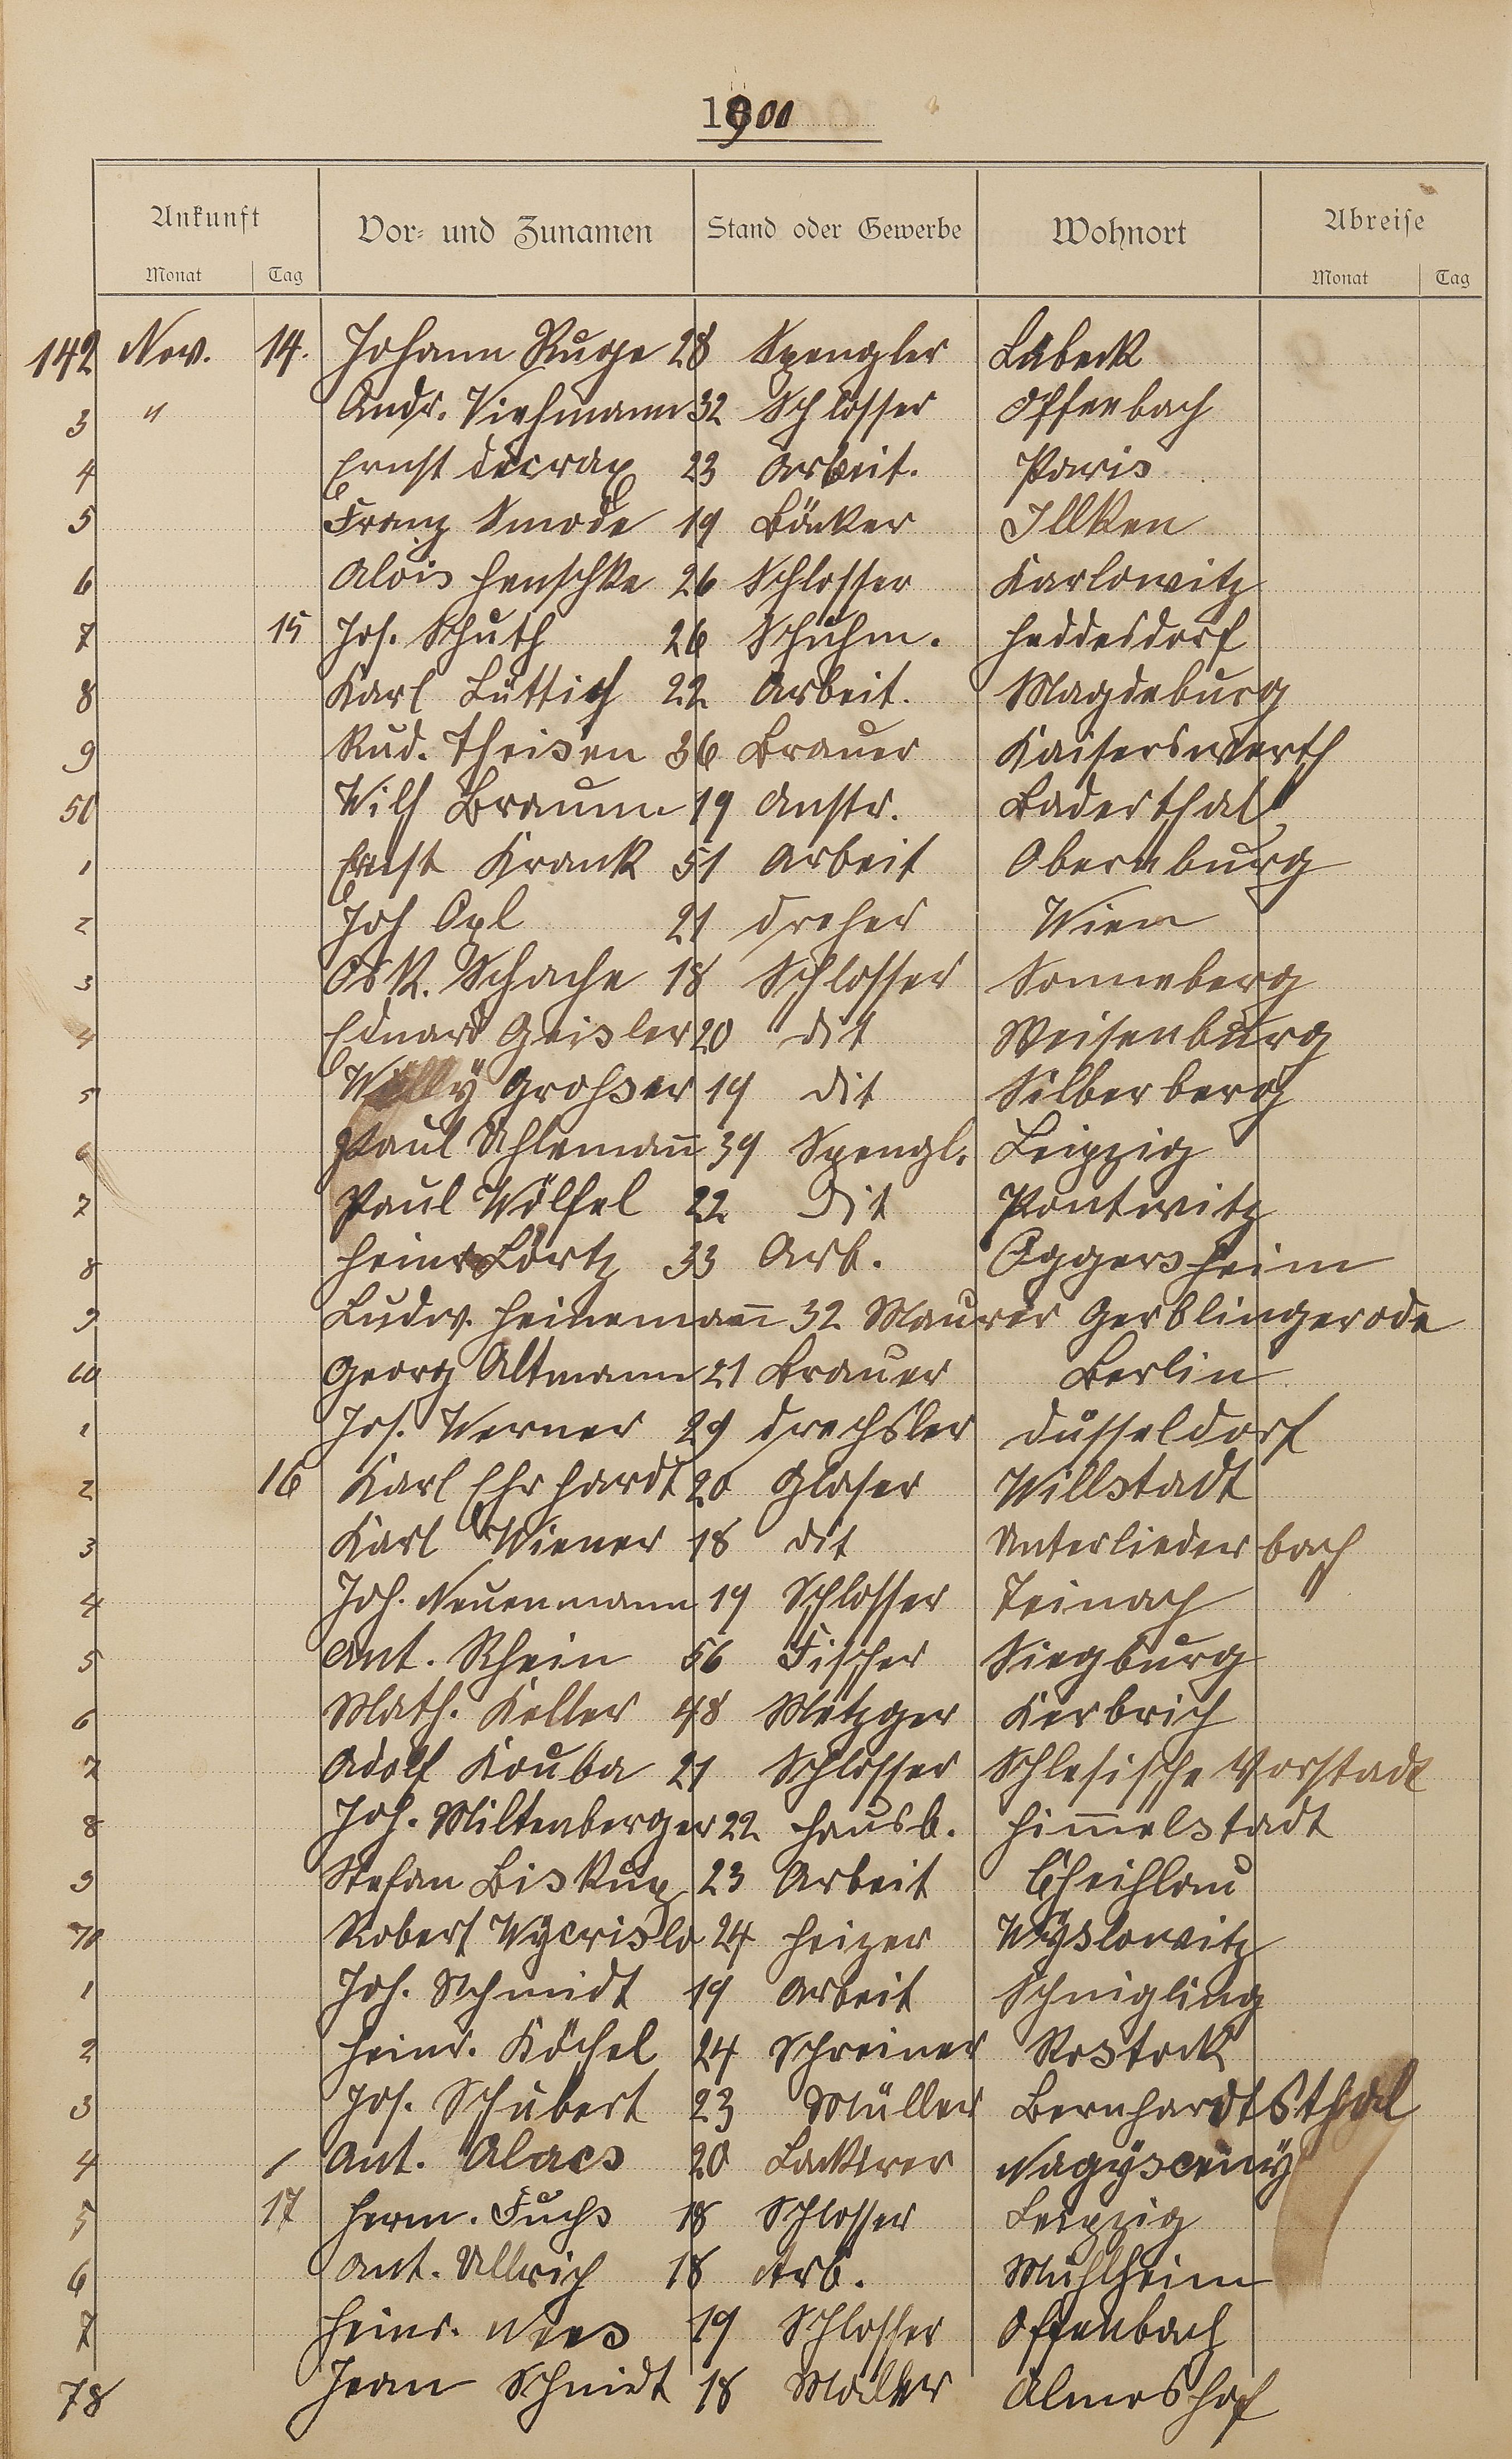 1900
Ankunft Vor- und Zunamen Stand oder Gewerbe Wohnort Abreise
Monat Tag Monat Tag
142 Nov. 14. Johann Ruge 28 Spengler Lübeck
3 " Andr. Viehmann 32 Schlosser Offenbach
4 Ernst 23 Arbeit. Paris
5 Franz Smode 19 Bäcker Illken
6 Alois Henschke 26 Schlosser Karlowitz
7 15 Jos. Schuth 26 Schuhm. Heddesdorf
8 Karl Lüttich 22 Arbeit. Magdeburg
9 Rud. Theisen 36 Brauer Kaiserswerth
50 Wilh Braunn 19 Anstr. Baderthal
1 Ernst Krank 51 Arbeit Obernburg
2 Joh Opl 21 Dreher Wien
3 Osk. Schache 18 Schlosser Sonneberg
4 Eduard Geisler 20 dit Weisenburg
5 Willy Grosser 19 dit Silberberg
6 Paul Uhlemann 39 Spengl. Leipzig
7 Paul Wölfel 22 dit Pontwitz
8 Heinr Lörtz 33 Arb. Oggersheim
9 Ludw. Heinemann 32 Maurer Gerblingerode
60 Georg Altmann 21 Brauer Berlin
1 Jos. Werner 29 Drechsler Düsseldorf
2 16 Karl Ehrhardt 20 Glaser Willstadt
3 Karl Wiener 18 dit Unterliederbach
4 Joh. Neuenmann 19 Schlosser Teinach
5 Ant. Rhein 56 Fischer Siegburg
6 Math. Keller 48 Metzger Kerbrich
7 Adolf Kouba 21 Schlosser Schlesische Vorstadt
8 Joh. Miltenberger 22 Hausb. Himmelstadt
9 Stefan Biskup 23 Arbeit
70 Robert Wycrislo 24 Heizer Myslowitz
1 Joh. Schmidt 19 Arbeit Schnigling
2 Heinr. Köchel 24 Schreiner Rostock
3 Jos. Schubert 23 Müller Bernhardtsthal
4 / Ant. Alacs 20 Lackirer
5 17 Herm. Fuchs 18 Schlosser Leipzig
6 Ant. Ullrich 18 Arb. Mühlheim
7 Heinr. Nees 19 Schlosser Offenbach
78 Jean Schmidt 18 Maler Almoshof